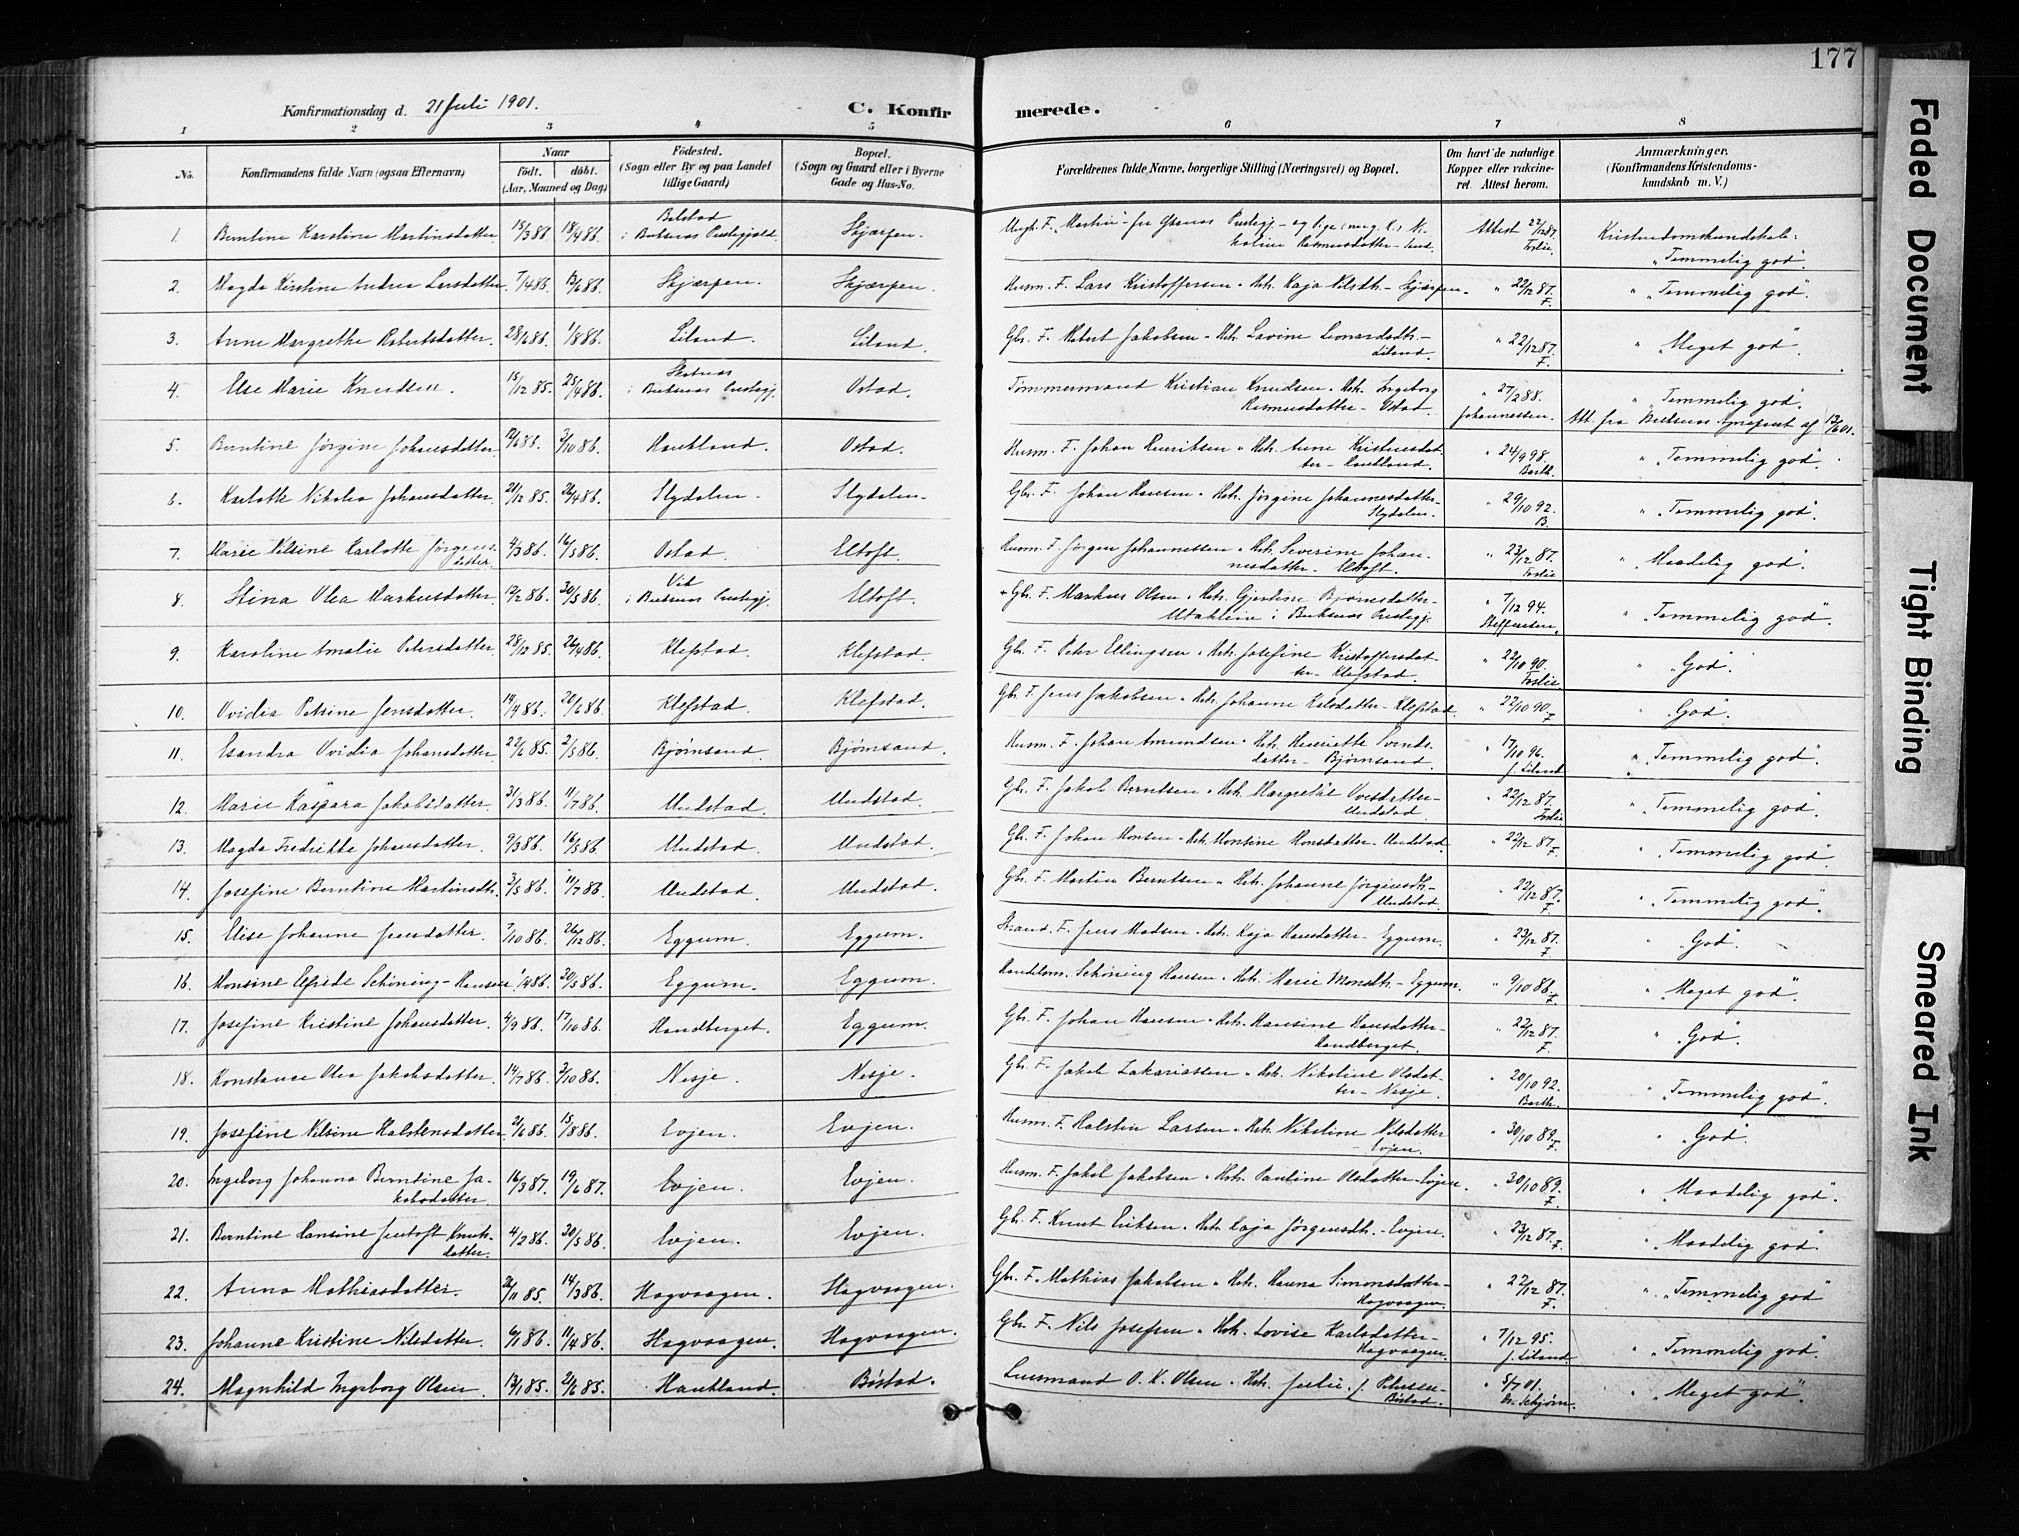 177
Konfirmationsdag d. 21 Juli 1901.
C. Konfirmerede.
1 2 3 4 5 6 7 8
No. Konfirmandens fulde Navn (ogsaa Efternavn)
Naar født. døbt. (Aar, Maaned og Dag)
Fødested. (Sogn eller By og paa Landet tillige Gaard)
Bopæl. (Sogn og Gaard eller i Byerne Gade og Hus-No.
Forældrenes fulde Navne, borgerlige Stilling (Næringsvei) og Bopæl.
Om havt de naturlige Kopper eller vakcineret. Attest herom.
Anmærkninger. (Konfirmandens Kristendomskundskab m. V.)
1. Berntine Karoline Martinsdatter. 15/3 86. 18/4 86. Bolstad i Buksnes Prestegjeld. Skjærpen. Attest 22/12 87. Foslie. Kristendomskundskab: "Temmelig god".
2. Magda Kirstine Andrea Larsdatter. 7/4 86. 13/6 86. Skjærpen. Skjærpen. Husm. F. Lars Kristoffersen - Hstr. Kaja Nilsdtr. - Skjærpen. " 22/12 87. F. " "Temmelig god".
3. Anne Margrethe Robertsdatter. 28/6 86. 1/8 86. Liland. Liland. Gbr. F. Robert Jakobsen - Hstr. Lavine Leonardsdtr. - Liland. " 22/12 87. F. " "Meget god".
4. Else Marie Knudsen. 15/12 85. 25/4 86. i Buksnes Prestegj. Ostad. Tømmermand Kristian Knudsen - Hstr. Ingeborg Rasmusdatter - Ostad. " 27/2 88. Johannessen. " "Temmelig god".
Att. fra Buksnes Sognepræst af 13/6 01.
5. Berntine Jørgine Johansdatter. 12/6 86. 3/10 86. Haukland. Ostad. Husm. F. Johan Henriksen - Hstr. Anne Kristensdatter - Haukland. " 24/9 98. Barth. " "Temmelig god".
6. Karlotte Nikolea Johansdatter. 21/12 85. 26/4 86. Slydalen. Slydalen. Gbr. F. Johan Hansen - Hstr. Jørgine Johannesdatter - Slydalen. " 29/10 92. B. " "Temmelig god".
7. Marie Nilsine Karlotte Jørgensdatter. 4/3 86. 16/5 86. Ostad. Eltoft. Husm. F. Jørgen Johannessen - Hstr. Severine Johannesdatter - Eltoft. " 23/12 87. Foslie " "Maadelig god".
8. Stina Olea Markusdatter. 12/2 86. 30/5 86. Vid i Buksnes Prestegj. Eltoft. + Gbr. F. Markus Olsen - Hstr. Gjertine Bjørnsdatter - i Buksnes Prestegj. " 7/12 94. Steffensen. " "Temmelig god".
9. Karoline Amalie Petersdatter. 28/12 85. 26/4 86. Klefstad. Klefstad. Gbr. F. Peter Ellingsen - Hstr. Josefine Kristoffersdatter - Klefstad. " 22/10 90. Foslie. " "God".
10. Ovidia Petrine Jensdatter. 14/4 86. 20/6 86. Klefstad. Klefstad. Gbr. F. Jens Jakobsen - Hstr. Johanne Karlsdatter - Klefstad. " 22/10 90. F " "God".
11. Esandra Ovidia Johansdatter. 22/6 85. 2/5 86. Bjørnsand. Bjørnsand. Husm. F. Johan Amundsen - Hstr. Henriette Svendsdatter - Bjørnsand. " 17/10 96. J. Liland " "Temmelig god".
12. Marie Kaspara Jakobsdatter. 31/3 86. 11/7 86. Unstad. Unstad. Gbr. F. Jakob Berntsen - Hstr. Margrethe Ovesdatter - Unstad. " 22/12 87. Foslie " "Temmelig god".
13. Magda Fredrikke Johansdatter. 9/3 86. 16/5 86. Unstad. Unstad. Gbr. F. Johan Monsen - Hstr. Montine Monsdatter - Unstad. " 22/12 87. F. " "Temmelig god".
14. Josefine Berntine Martinsdtr. 3/5 86. 11/7 86 Unstad. Unstad. Gbr. F. Martin Berntsen - Hstr. Johanne Jørgensdtr. - Unstad. " 22/12 87. F. " "Temmelig god".
15. Elise Johanne Jensdatter. 7/10 86. 26/12 86. Eggum. Eggum. Strand. F. Jens Madsen - Hstr. Kaja Hansdatter - Eggum. " 23/12 87. F " "God".
16. Monsine Elfride Schøning-Hansen. 1/4 86. 30/5 86. Eggum. Eggum. Handelsm. Schøning Hansen - Hstr. Marie Monsdtr. - Eggum. " 9/10 86. F. " "Meget god".
17. Josefine Kristine Johansdatter. 4/9 86. 17/10 86. Handberget. Eggum. Gbr. F. Johan Hansen - Hstr. Hansine Hansdatter - Handberget. " 22/12 87. F. " "God".
18. Konstance Olea Jakobsdatter. 14/7 86. 3/10 86. Nesje. Nesje. Gbr. F. Jakob Zakariassen - Hstr. Nikoline Olsdatter - Nesje. " 20/10 92. Barth. " "Temmelig god".
19. Josefine Nilsine Halstensdatter. 21/6 86. 15/8 86. Evjen. Evjen. Husm. F. Halsten Larsen - Hstr. Nikoline Nilsdatter - Evjen. " 30/10 89. F " "God".
20. Ingeborg Johanna Berntine Jakobsdatter. 16/3 87. 19/6 87. Evjen. Evjen. Husm. F. Jakob Jakobsen - Hstr. Pauline Olsdatter - Evjen. " 30/10 89. F. " "Maadelig god".
21. Berntine Hansine Jentoft Knutsdatter. 4/2 86. 30/5 86. Evjen. Evjen. Gbr. F. Knut Eriksen - Hstr. Kaja Jørgensdtr. - Evjen. " 23/12 87. F. " "Maadelig god".
22. Anna Mathiasdatter. 21/11 85. 14/3 86. Hagvaagen. Hagvaagen. Gbr. F. Mathias Jakobsen - Hstr. Hanna Simonsdatter - Hagvaagen. " 22/12 87. F. " "Temmelig god"
23. Johanne Kristine Nilsdatter. 6/1 86. 11/4 86. Hagvaagen. Hagvaagen. Gbr. F. Nils Josefsen - Hstr. Lovise Karlsdatter - Hagvaagen. " 7/12 95. J. Liland " "Temmelig god".
24. Magnhild Ingeborg Olsen. 13/1 85. 21/6 85. Haukland. Bøstad. Lensmand O. K. Olsen - Hstr. Julie f. Petersen - Bøstad. " 5/7 01. Dr. Schjørn. " "Meget god".
Faded Document
Tight Binding
Smeared Ink